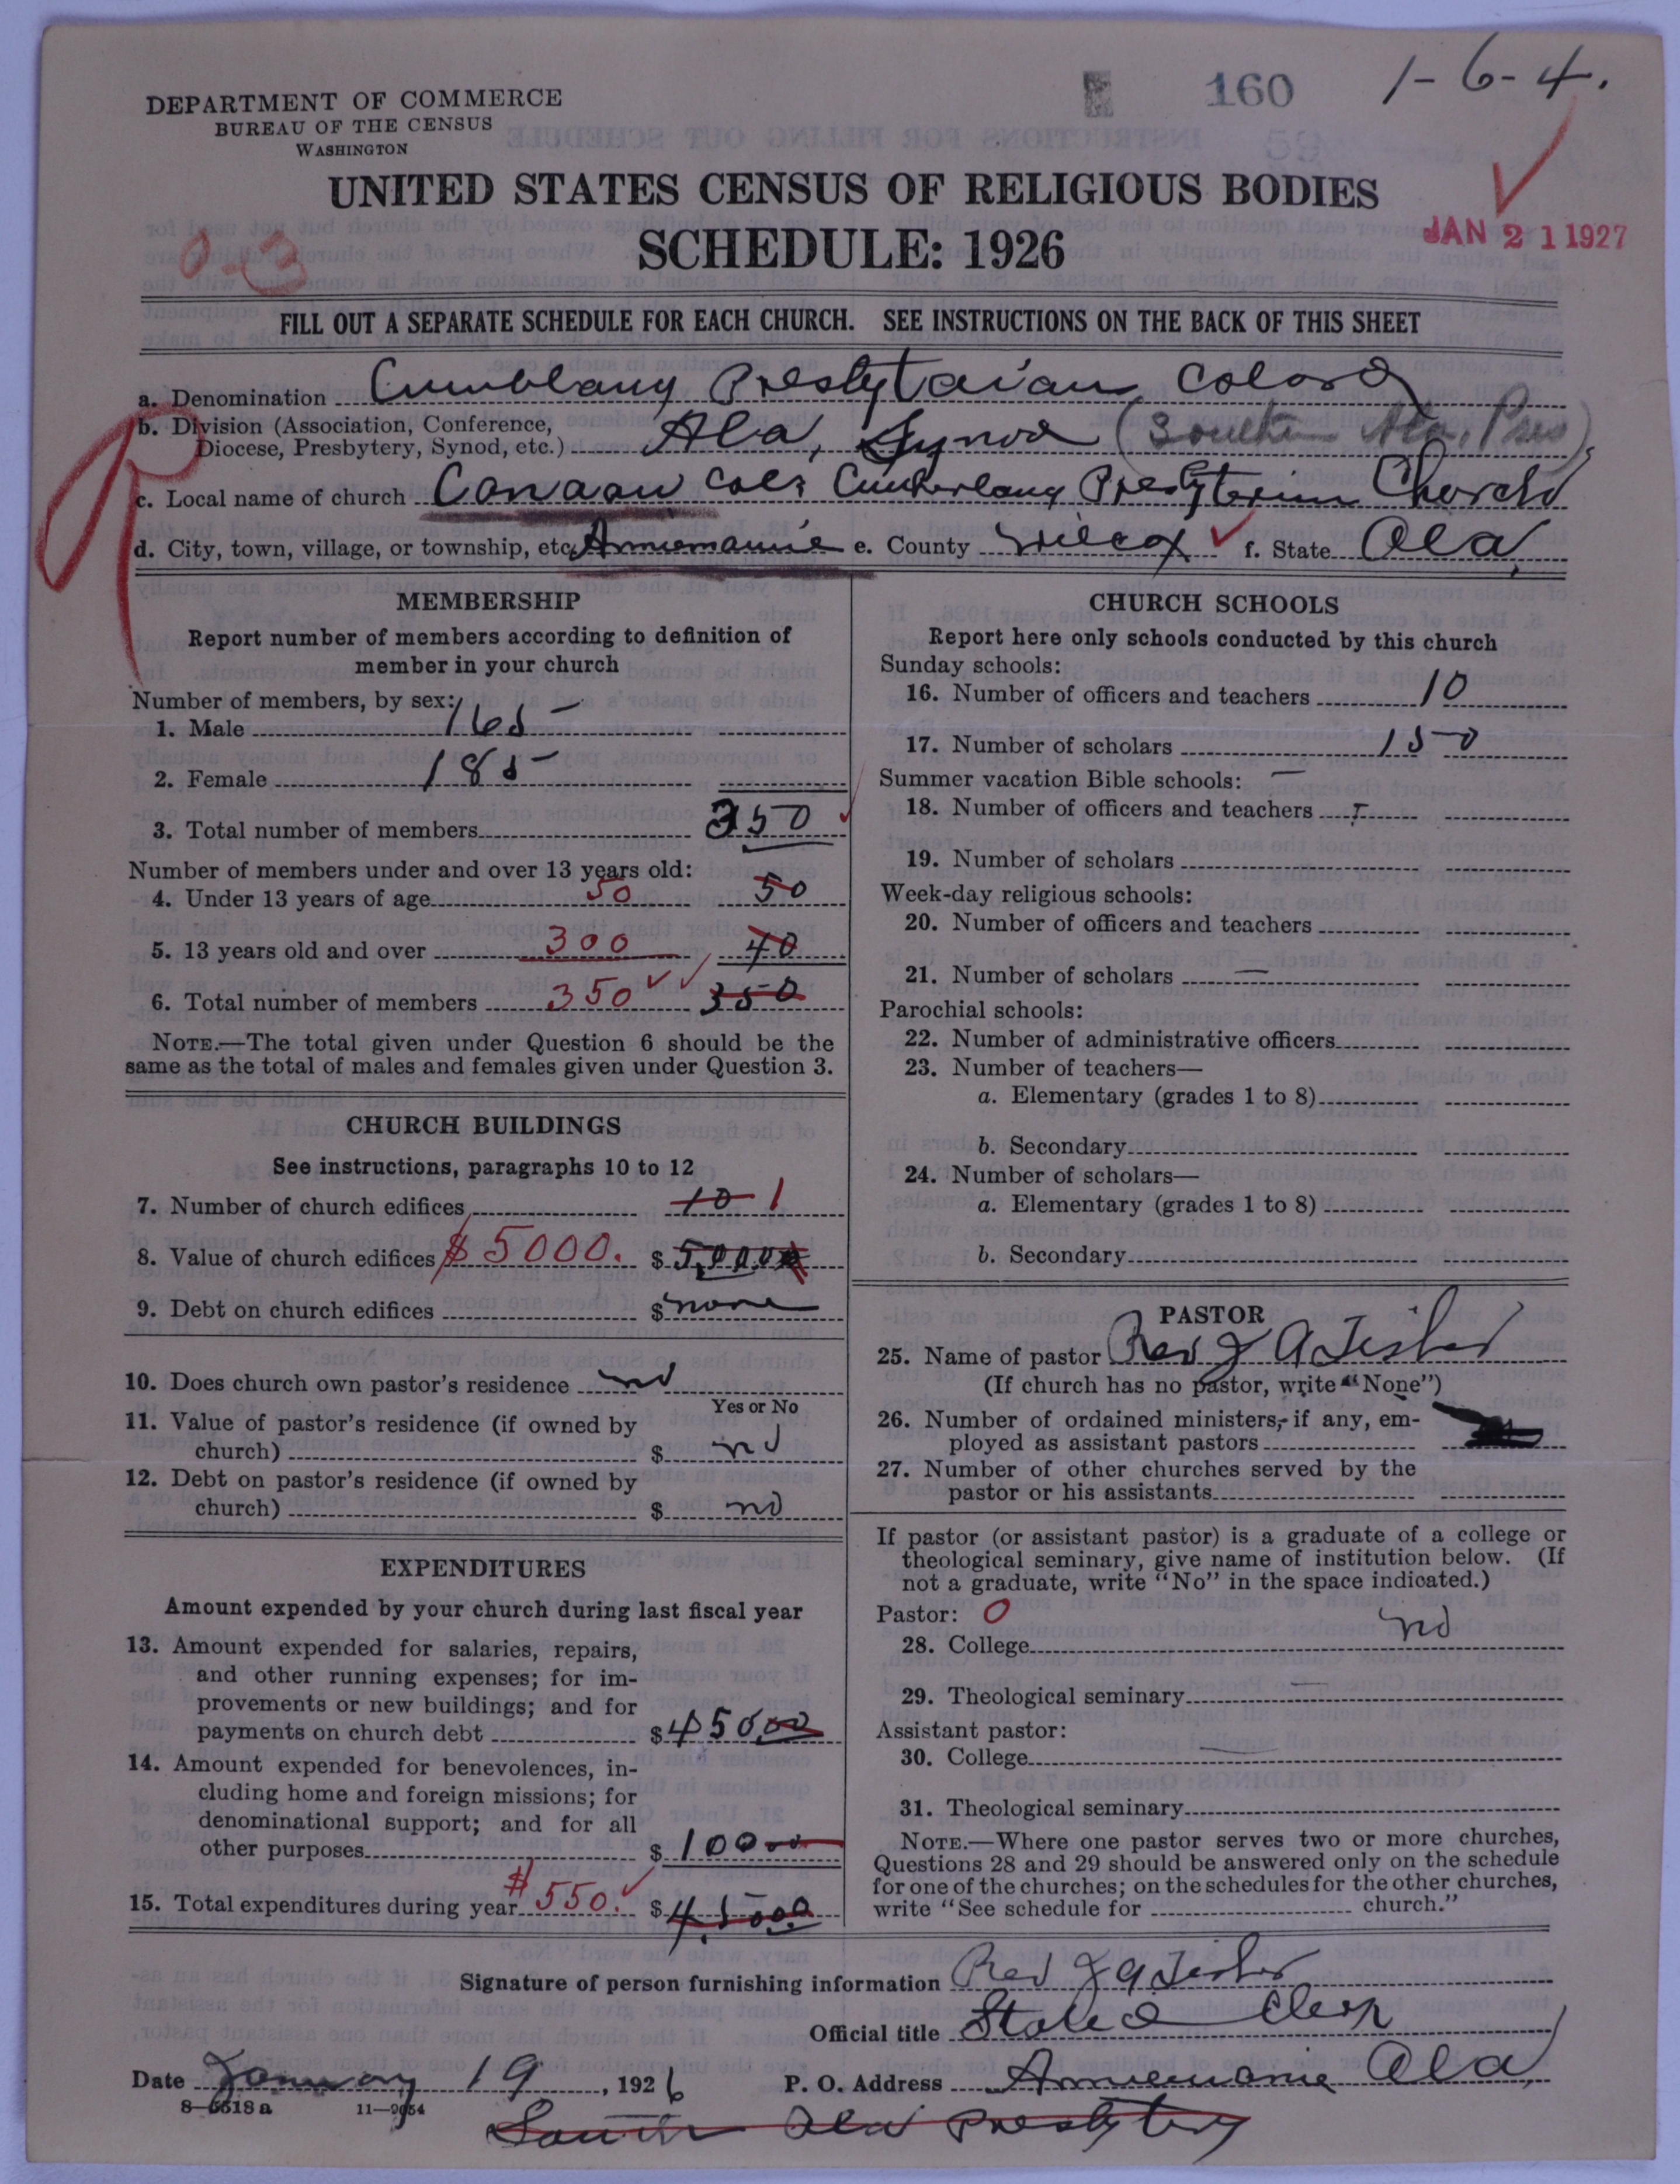 160 1-6-4.
DEPARTMENT OF COMMERCE
BUREAU OF THE CENSUS
WASHINGTON
UNITED STATES CENSUS OF RELIGIOUS BODIES
JAN 21 1927
0-3
SCHEDULE: 1926
FILL OUT A SEPARATE SCHEDULE FOR EACH CHURCH. SEE INSTRUCTIONS ON THE BACK OF THIS SHEET
a. Denomination Cumblany Presbytaian Colord
b. Division (Association, Conference,
Diocese, Presbytery, Synod, etc.) Ala, Synod (Southern Ala. Pres)
c. Local name of church Canaan Cols Cumberlany Presbyterian Church
d. City, town, village, or township, etc. Anniemanie e. County Wilcox f. State Ala,
MEMBERSHIP
Report number of members according to definition of
member in your church
Number of members, by sex:
1. Male 165
2. Female 185
3. Total number of members 350
Number of members under and over 13 years old:
4. Under 13 years of age 50 50
5. 13 years old and over 300 40
6. Total number of members 350 350
NOTE.—The total given under Question 6 should be the
same as the total of males and females given under Question 3.
CHURCH BUILDINGS
See instructions, paragraphs 10 to 12
7. Number of church edifices 10 1
8. Value of church edifices $5000. $ 5,000
9. Debt on church edifices $ none
10. Does church own pastor's residence no
Yes or No
11. Value of pastor's residence (if owned by
church) $ no
12. Debt on pastor's residence (if owned by
church) $ no
EXPENDITURES
Amount expended by your church during last fiscal year
13. Amount expended for salaries, repairs,
and other running expenses; for im-
provements or new buildings; and for
payments on church debt $ 450.00
14. Amount expended for benevolences, in-
cluding home and foreign missions; for
denominational support; and for all
other purposes $ 100 00
15. Total expenditures during year $550. $ 45000
CHURCH SCHOOLS
Report here only schools conducted by this church
Sunday schools:
16. Number of officers and teachers 10
17. Number of scholars 150
Summer vacation Bible schools: —
18. Number of officers and teachers
19. Number of scholars
Week-day religious schools:
20. Number of officers and teachers
21. Number of scholars —
Parochial schools:
22. Number of administrative officers
23. Number of teachers—
a. Elementary (grades 1 to 8)
b. Secondary
24. Number of scholars—
a. Elementary (grades 1 to 8)
b. Secondary
PASTOR
25. Name of pastor Rev J A Tisher
(If church has no pastor, write "None")
26. Number of ordained ministers, if any, em-
ployed as assistant pastors
27. Number of other churches served by the
pastor or his assistants
If pastor (or assistant pastor) is a graduate of a college or
theological seminary, give name of institution below. (If
not a graduate, write "No" in the space indicated.)
Pastor: 0
28. College no
29. Theological seminary —
Assistant pastor:
30. College —
31. Theological seminary
NOTE.—Where one pastor serves two or more churches,
Questions 28 and 29 should be answered only on the schedule
for one of the churches; on the schedules for the other churches,
write "See schedule for church."
Signature of person furnishing information Rev J A Tisher
Official title Stated Clerk
Date January 19, 1926 P. O. Address Anniemanie Ala,
8-5518a 11-9054
South Ala Presbytry